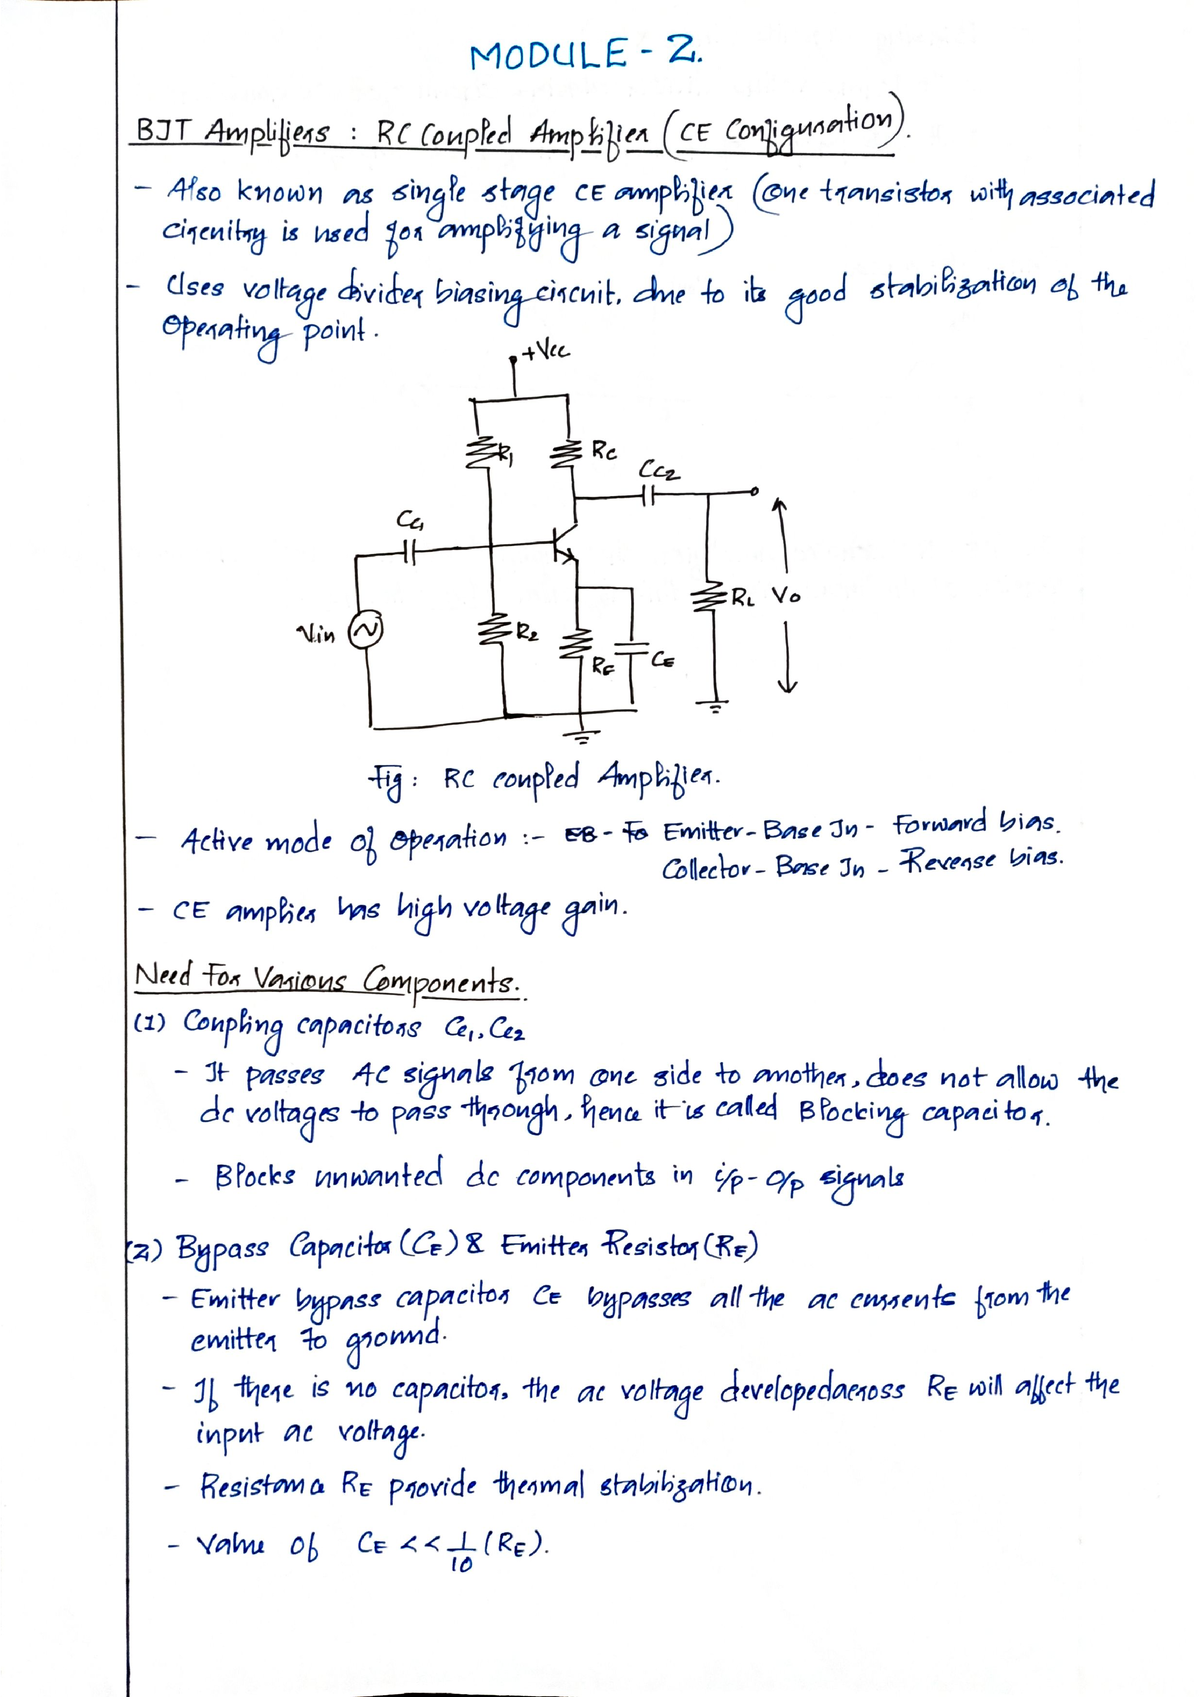 MODULE - 2.
BJT Amplifiers : RC Coupled Amplifier (CE Configuration).
- Also known as single stage CE amplifier (one transistor with associated
circuitry is used for amplifying a signal)
- Uses voltage divider biasing circuit, due to its good stabilization of the
operating point.
+Vcc
R1
RC
CC2
CC1
RL Vo
Vin
R2
RE
CE
Fig : RC coupled Amplifier.
- Active mode of operation :- EB - Fo Emitter - Base Jn - Forward bias.
Collector - Base Jn - Reverse bias.
- CE amplier has high voltage gain.
Need For Various Components.
(1) Coupling capacitors Cc1, Cc2
- It passes AC signals from one side to another, does not allow the
dc voltages to pass through, hence it is called Blocking capacitor.
- Blocks unwanted dc components in i/p - o/p signals
(2) Bypass Capacitor (CE) & Emitter Resistor (RE)
- Emitter bypass capacitor CE bypasses all the ac currents from the
emitter to ground.
- If there is no capacitor, the ac voltage developedacross RE will affect the
input ac voltage.
- Resistance RE provide thermal stabilization.
- Value of CE << 1/10 (RE).